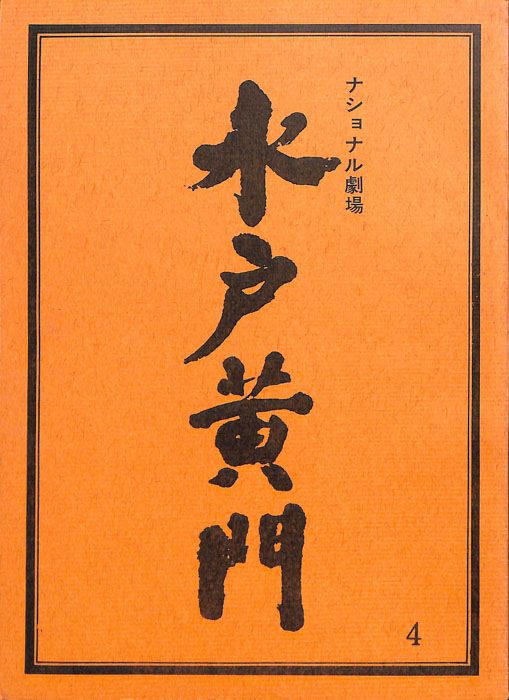 ナショナル劇場
水戸黄門
4